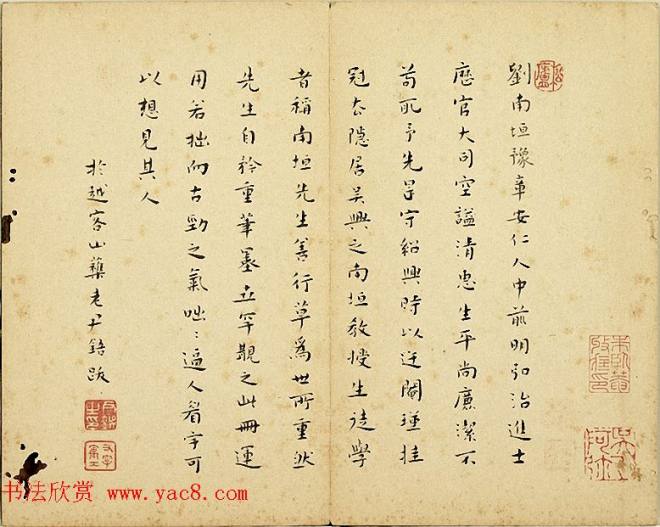 劉南垣豫章安仁人中前明弘治進士
歷官大司空謚清惠生平尚廉潔不
苟死予先是守紹興時以迕閹瑾挂
冠去隱居吴興之南垣教授生徒學
者稱南垣先生善行草為世所重然
先生自矜重筆墨真罕覯之此冊運
用若拙而古勁之氣咄〻逼人看字可
以想見其人
於越客山藥老尹鍇跋
书法欣赏 www.yac8.com